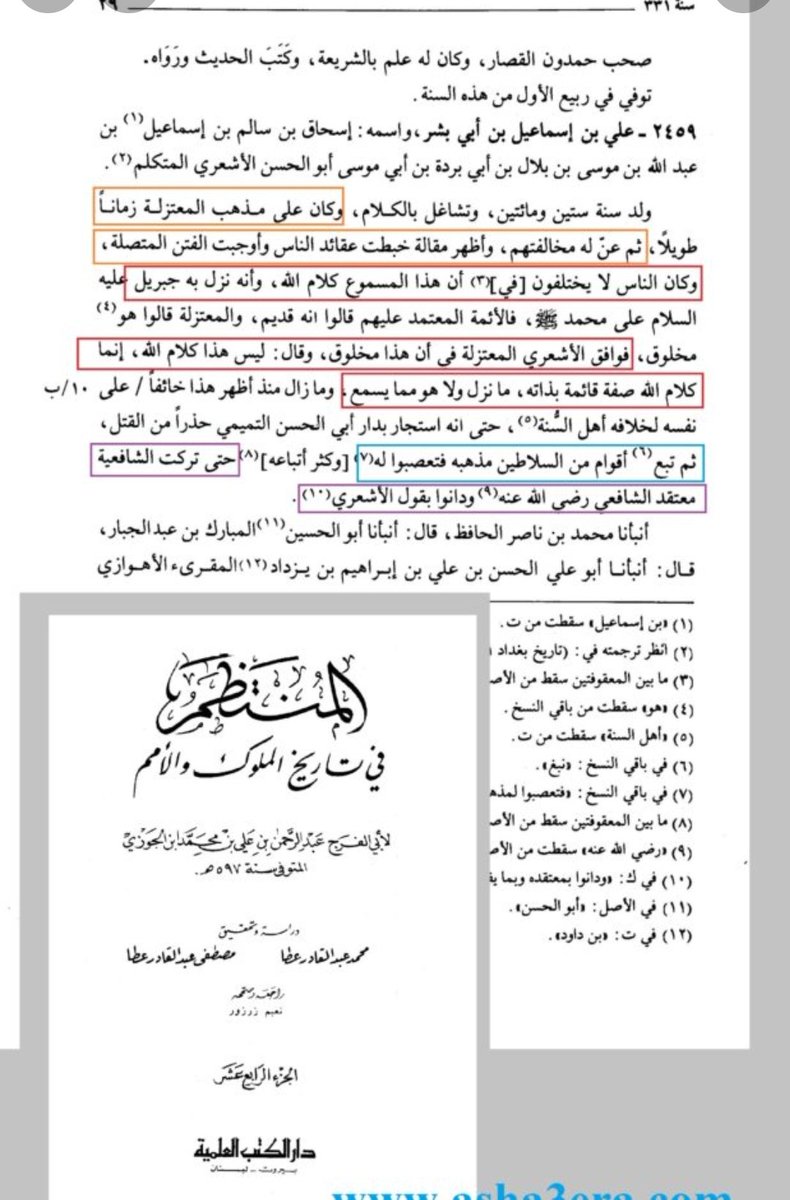 سنة ٣٣١ ـــــ ٢٩
صحب حمدون القصار، وكان له علم بالشريعة، وكَتَبَ الحديث ورَوَاه.
توفي في ربيع الأول من هذه السنة.
٢٤٥٩ - علي بن إسماعيل بن أبي بشر، واسمه: إسحاق بن سالم بن إسماعيل(١) بن
عبد الله بن موسى بن بلال بن أبي بردة بن أبي موسى أبو الحسن الأشعري المتكلم(٢).
ولد سنة ستين ومائتين، وتشاغل بالكلام، وكان على مذهب المعتزلة زماناً
طويلاً، ثم عنّ له مخالفتهم، وأظهر مقالة خبطت عقائد الناس وأوجبت الفتن المتصلة،
وكان الناس لا يختلفون [في](٣) أن هذا المسموع كلام الله، وأنه نزل به جبريل عليه
السلام على محمد ﷺ، فالأئمة المعتمد عليهم قالوا انه قديم، والمعتزلة قالوا هو(٤)
مخلوق، فوافق الأشعري المعتزلة في أن هذا مخلوق، وقال: ليس هذا كلام الله، إنما
كلام الله صفة قائمة بذاته، ما نزل ولا هو مما يسمع، وما زال منذ أظهر هذا خائفاً / على ١٠/ب
نفسه لخلافه أهل السُّنة(٥)، حتى انه استجار بدار أبي الحسن التميمي حذراً من القتل،
ثم تبع(٦) أقوام من السلاطين مذهبه فتعصبوا له(٧) [وكثر أتباعه](٨) حتى تركت الشافعية
معتقد الشافعي رضي الله عنه(٩) ودانوا بقول الأشعري(١٠).
أنبأنا محمد بن ناصر الحافظ، قال: أنبأنا أبو الحسين(١١) المبارك بن عبد الجبار،
قال: أنبأنا أبو علي الحسن بن علي بن إبراهيم بن يزداد(١٢) المقرىء الأهوازي
(١) «بن إسماعيل» سقطت من ت.
(٢) انظر ترجمته في: (تاريخ بغداد
(٣) ما بين المعقوفتين سقط من الأص
(٤) «هو» سقطت من باقي النسخ.
(٥) «أهل السنة» سقطت من ت.
(٦) في باقي النسخ: «نبغ».
(٧) في باقي النسخ: «فتعصبوا لمذه
(٨) ما بين المعقوفتين سقط من الأص
(٩) «رضي الله عنه» سقطت من الأص
(١٠) في ك: «ودانوا بمعتقده وبما يق
(١١) في الأصل: «أبو الحسن».
(١٢) في ت: «بن داود».
المنتظم
في تاريخ الملوك والأمم
لأبي الفرج عبد الرحمن بن علي بن محمد ابن الجوزي
المتوفى سنة ٥٩٧ هـ.
دراسة وتحقيق
محمد عبد القادر عطا مصطفى عبد القادر عطا
راجعه وصححه
نعيم زرزور
الجزء الرابع عشر
دار الكتب العلمية
بيروت - لبنان
www.asha3era.com